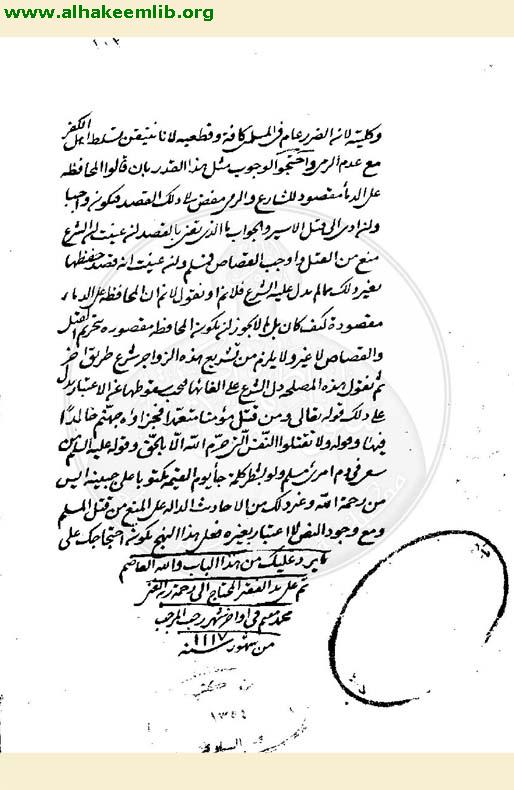 www.alhakeemlib.org
١٠٢
وكلية لانه الضرر عام في المسلمين كافة وقطعيه لانا نتيقن تسلط اهل الكفر
مع عدم الرمي واحتجوا لوجوب مثل هذا القدر بان قالوا المحافظه
على الدماء مقصود للشارع والرمي مفض لا ذلك القصد فيكون واجبا
وان ادى الى قتل الاسير والجواب ما الذي تعني بالقصد ان عنيت ان الشرع
منع من القتل واوجب القصاص فمسلم وان عنيت انه قصد حفظها
بغير ذلك مما لم يدل عليه الشرع فلا ثم او نقول لا ثم ان المحافظة على الدماء
مقصودة كيف كان بل لم لا يجوز ان يكون المحافظه مقصوده بتحريم القتل
والقصاص لا غير ولا يلزم من تشريع هذه الزواجر شرع طريق اخر
ثم نقول هذه المصلحه دل الشرع على الغائها فيجب سقوطها عن الاعتبار يدل
على ذلك قوله تعالى ومن قتل مؤمنا متعمدا فجزاؤه جهنم خالدا
فيها وقوله ولا تقتلوا النفس التي حرم الله الا بالحق وقوله عليه السلام من
سعى في دم امرئ مسلم ولو بشطر كلمة جاء يوم القيمة مكتوبا على جبينه ايس
من رحمة الله وغير ذلك من الاحاديث الدالة على المنع من قتل المسلم
ومع وجود النص لا اعتبار بغيره فعلى هذا النهج يكون احتجاجك على
ما يرد عليك من هذا الباب والله العاصم
تم على يد الفقير المحتاج الى رحمة ربه الغني
محمد مقيم في اواخر شهر رجب المرجب
من شهور سنه ١١١٧